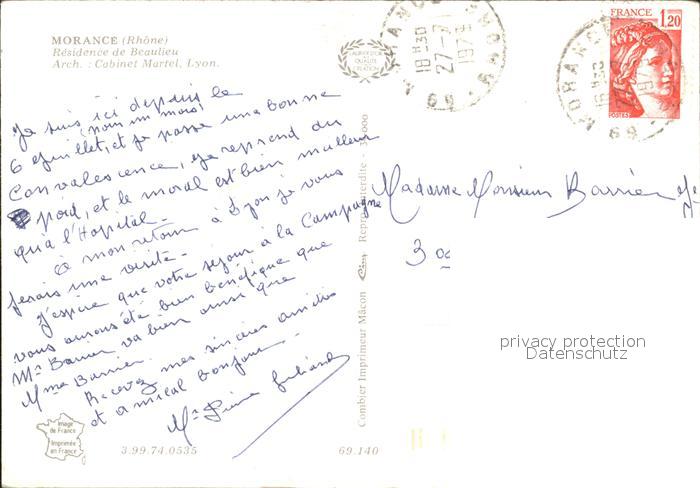 MORANCE (Rhône)
Résidence de Beaulieu
Arch. : Cabinet Martel, Lyon.
Je suis ici depuis le
(pour un mois)
6 Juillet, et je passe une bonne
Convalescence, je reprend du
poid, et le moral est bien meilleur
qu'a l'Hopital.
à mon retour à Lyon je vous
ferais une visite.
J'espère que votre sejour à la Campagne
vous auras été bien bénéfique que
Mr Barrier va bien ainsi que
Mme Barrier.
Recevez mes sincères amitiés
et amical bonjour.
Mr Pierre
Image
de France
Imprimée
en France
3.99.74.0535
69.140
Combier Imprimeur Mâcon
Cim
Repro. interdite - 35-000
MORANCE
18H30
27-7
1979
RHONE
69
FRANCE
1,20
POSTES
MORANCE
18H30
27-7
197
69
Madame Monsieur Barrier
3 
privacy protection
Datenschutz